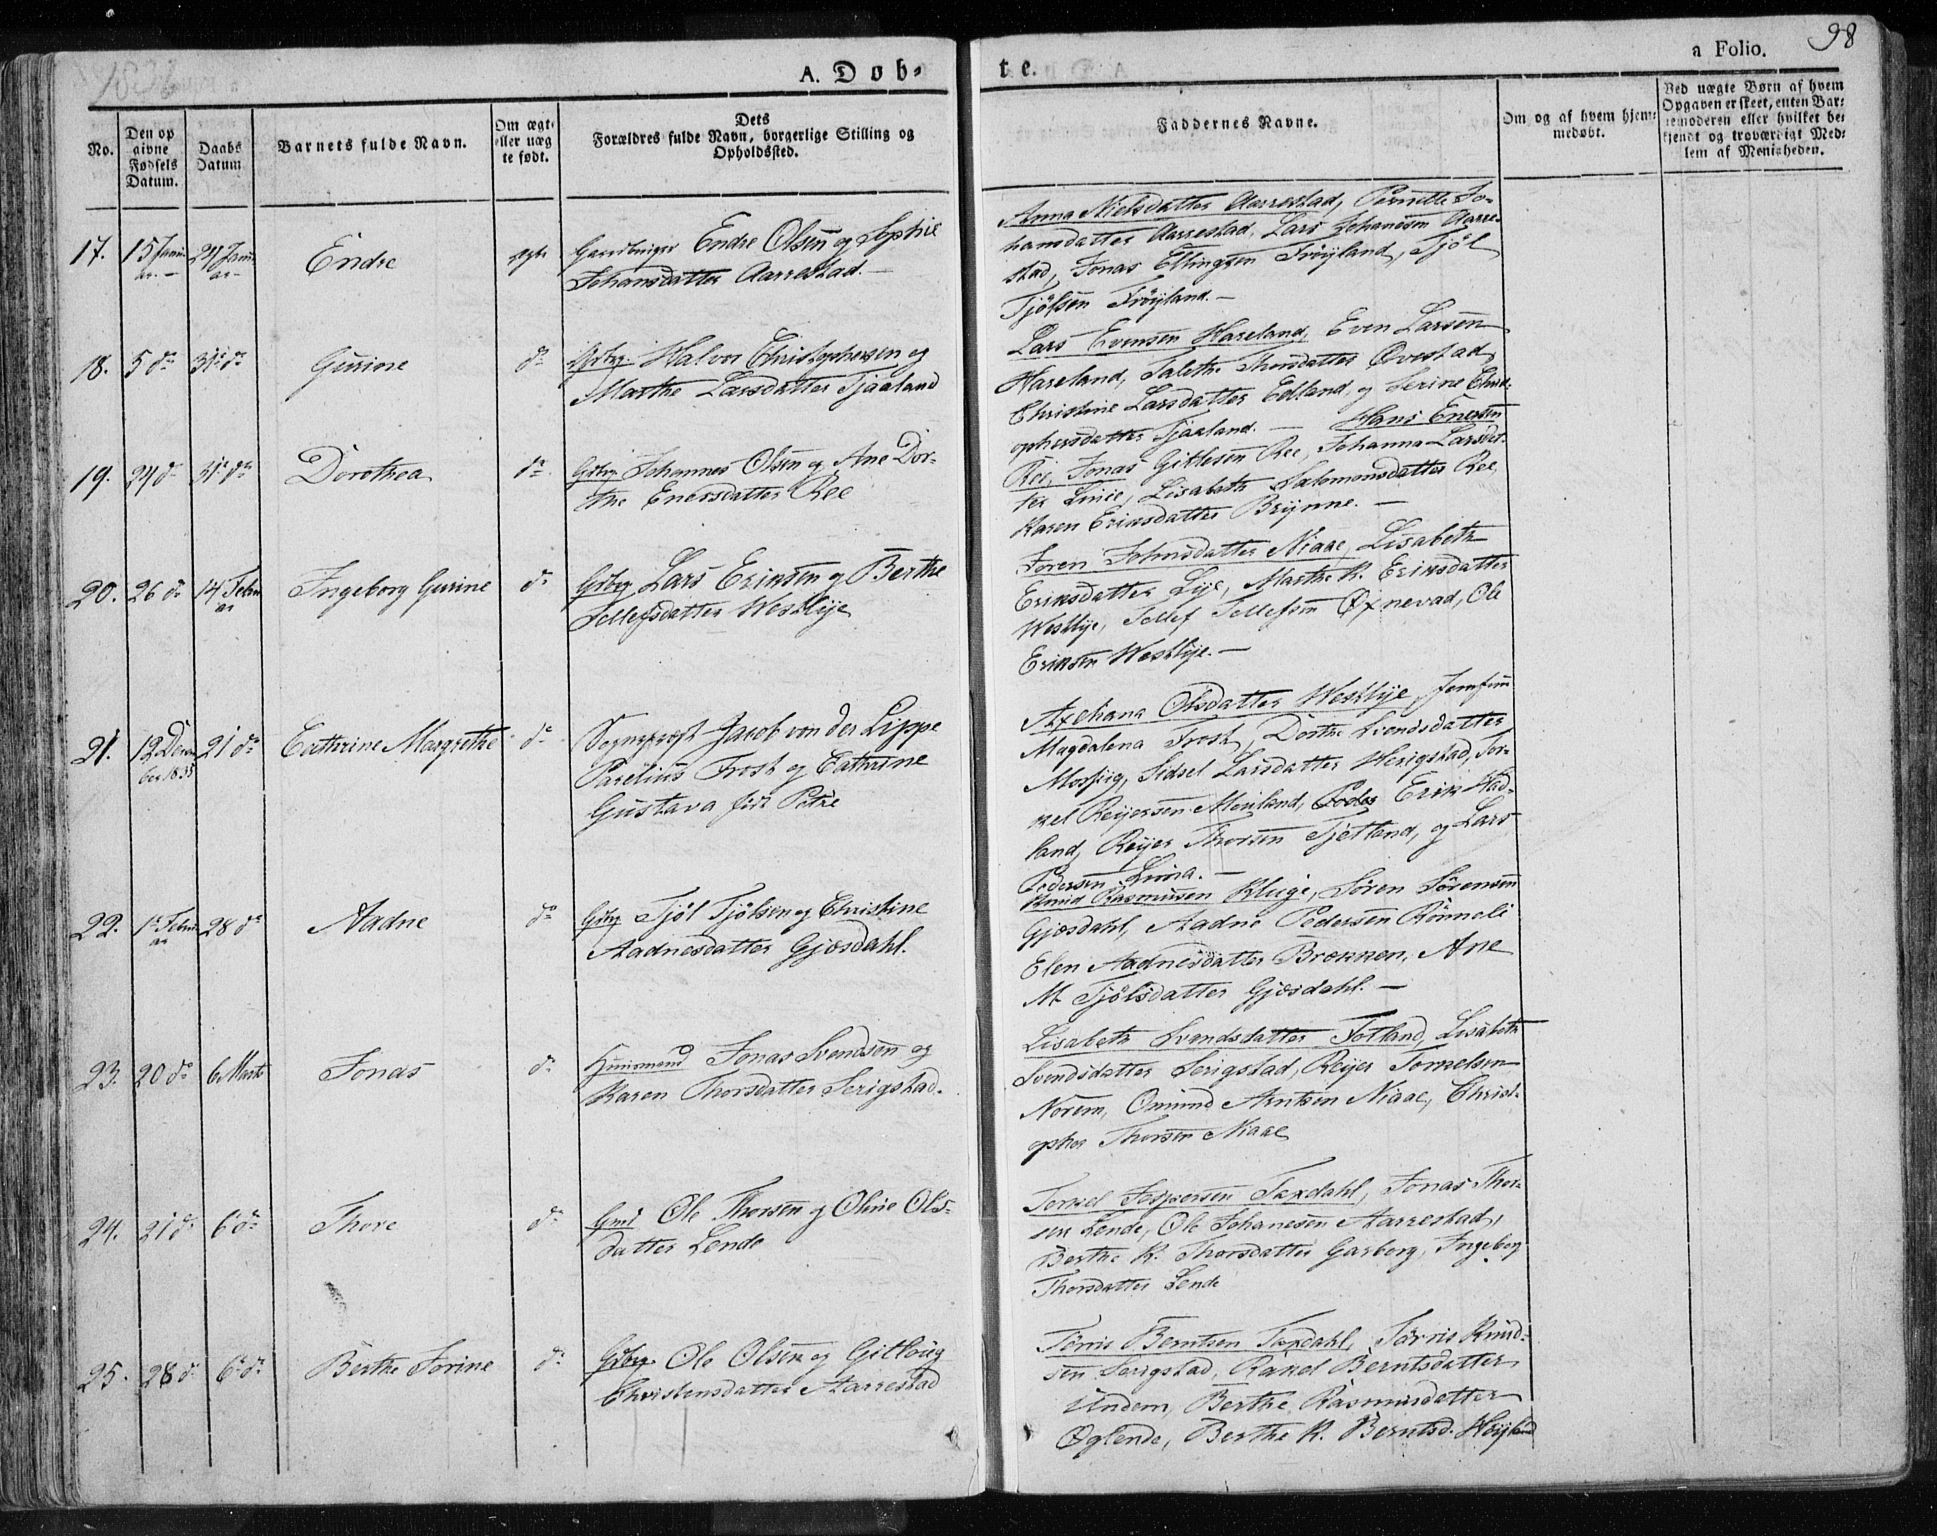 1836
A. Døb-
te.
a Folio. 98
No.
Den op
givne
Fødsels
Datum.
Daabs
Datum
Barnets fulde Navn.
Om ægte
eller uæg
te født.
Dets
Forældres fulde Navn, borgerlige Stilling og
Opholdssted.
Faddernes Navne.
Om og af hvem hjem-
medøbt.
Ved uægte Børn af hvem
Opgaven er skeet, enten Bar-
nemoderen eller hvilket be-
kjendt og troværdigt Med-
lem af Menigheden.
17. 15 Janu
ar. 24 Janu
ar Endre ægte Gaardbruger Endre Olsen og Sophie
Johansdatter Aarrestad.
Anna Nielsdatter Aarrestad, Pernille Jo-
hansdatter Aarrestad, Lars Johanesen Aarre-
stad, Jonas Ellingsen Frøyland, Tjøl
Tjølsen Frøyland.
18. 5 do 31te do Gurine do Grbrg. Halvor Christophersen og
Marthe Larsdatter Tjaaland
Lars Evensen Hareland, Even Larsen
Hareland, Talethe Thorsdatter Qvestad
Christine Larsdatter Edland, og Serine Christ-
ophersdatter Tjaaland.
19. 24 do 31te do Dorothea do Grbrg Johannes Olsen og Ane Dor-
the Enersdatter Ree
Hans Enersen
Ree, Jonas Gitlesen Ree, Johanna Larsdat-
ter Line, Lisabeth Salomonsdatter Ree,
Karen Eriksdatter Brynne.
20. 26 do 14 Febru
ar Ingeborg Gurine do Grbrg Lars Eriksen og Berthe
Tellefsdatter Westlye
Soren Johnsdatter Niaae, Lisabeth
Eriksdatter Lye, Marthe K. Eriksdatter
Westlye, Tellef Tellefsen Øxnevad, Ole
Eriksen Westlye.
21. 12 Decem
ber 1835 21 do Cathrine Margrethe do Sognepræst Jacob von der Lippe
Parelius Frost og Cathrine
Gustava født Petre
Axeliana Olsdatter Westlye, Jomfrue
Magdalena Frost, Dorthe Svendsdatter
Mossig, Sidsel Larsdatter Herigstad, Tor-
kel Reyersen Meiland, Peder Erik Had-
land, Reyer Thorsen Tjetland, og Lars
Pedersen Lima.
22. 1te Febru
ar 28 do Aadne do Grbrg Tjøl Tjølsen og Christine
Aadnesdatter Gjøsdahl.
Knud Rasmusen Kluge, Søren Sørensen
Gjøsdahl, Aadne Pedersen Rønneli
Elen Aadnesdatter Brekken, Ane
M. Tjølsdatter Gjøsdahl.
23. 20 do 6 Marts Jonas do Huusmand Jonas Svendsen og
Karen Thorsdatter Serigstad.
Lisabeth Svendsdatter Fotland, Lisabeth
Svendsdatter Serigstad, Reyer Torkelsen
Norem, Omund Arntsen Niaae, Christ-
opher Thorsen Niaae
24. 21 do 6te do Thore do Gmd Ole Thorsen og Oline Ols-
datter Lende
Torkel Jespersen Taxdahl, Jonas Thor-
sen Lende, Ole Johanesen Aarrestad,
Berthe K. Thorsdatter Garborg, Ingeborg
Thorsdatter Lende
25. 28 do 6te do Berthe Sorine do Grbrg. Ole Olsen og Gitlaug
Christensdatter Aarrestad
Tørris Berntsen Taxdahl, Tørris Knud-
sen Serigstad, Rakel Berntsdatter
Undem, Berthe Rasmusdatter
Øglende, Berthe K. Berntsd. Høyland